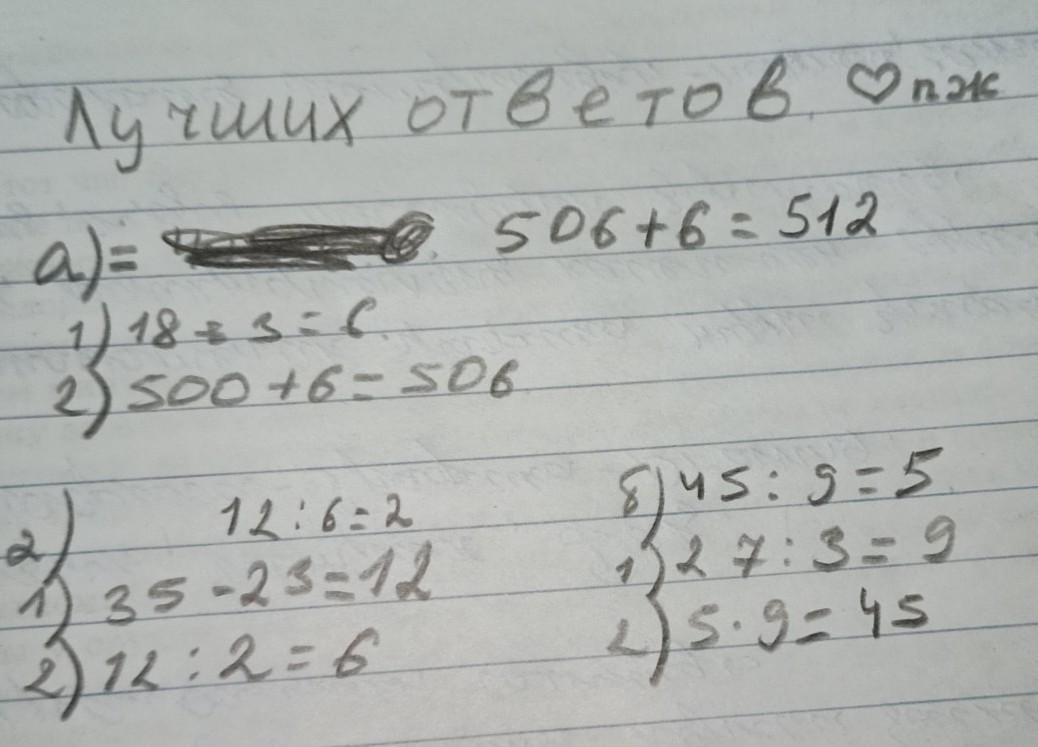 Лучших ответов. ♡пж
а)= 506+6=512
1) 18:3=6
2) 500+6=506
г) 12:6=2
1) 35-23=12
2) 12:2=6
б) 45:9=5
1) 27:3=9
2) 5·9=45